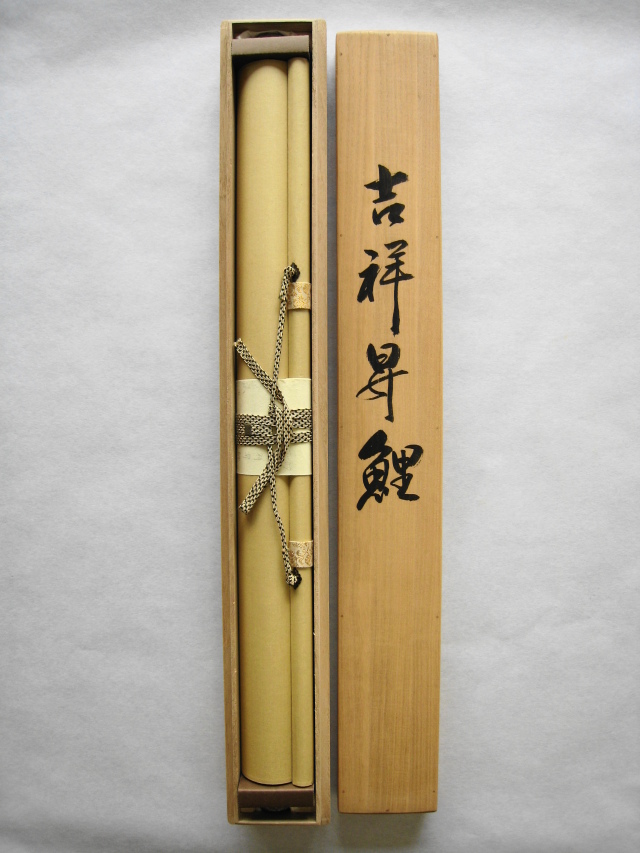 吉祥昇鯉